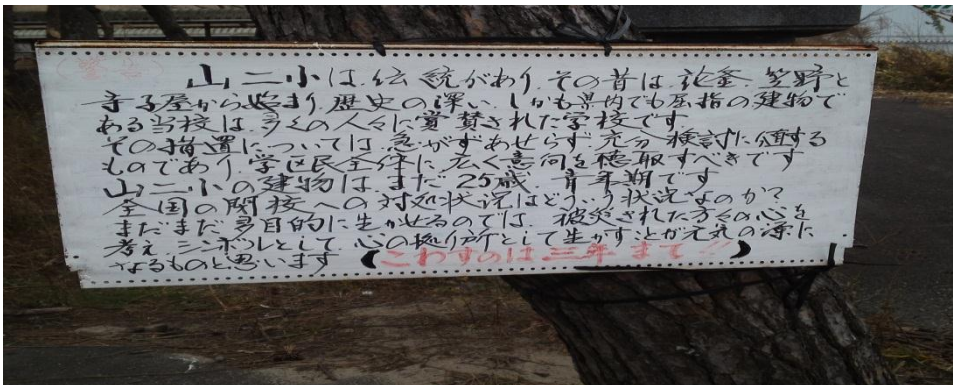 山二小は伝統があり その昔は 笠野と
寺子屋から始まり 歴史の深い しかも県内でも屈指の建物で
ある当校は 多くの人々に賞賛された学校です
その措置については 急がずあせらず 充分 検討に値する
ものであり 学区民全体に 広く意向を聴取すべきです
山二小の建物は まだ 25歳 青年期です
全国の閉校への対処状況はどういう状況なのか?
まだまだ多目的に生かせるのでは 被災された方々の心を
考え シンボルとして 心の拠り所として生かすことが元気の源に
なるものと思います (こわすのは三年まて!!)